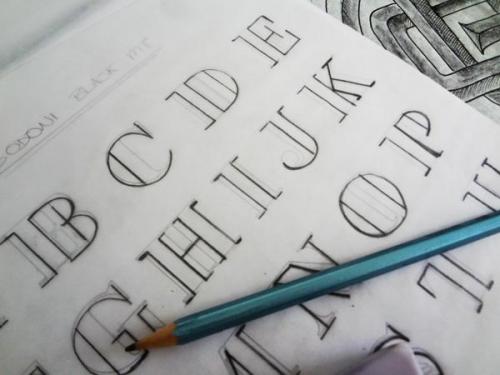 BODONI BLACK MT
B C D E
G H I J K
M N O P
S T